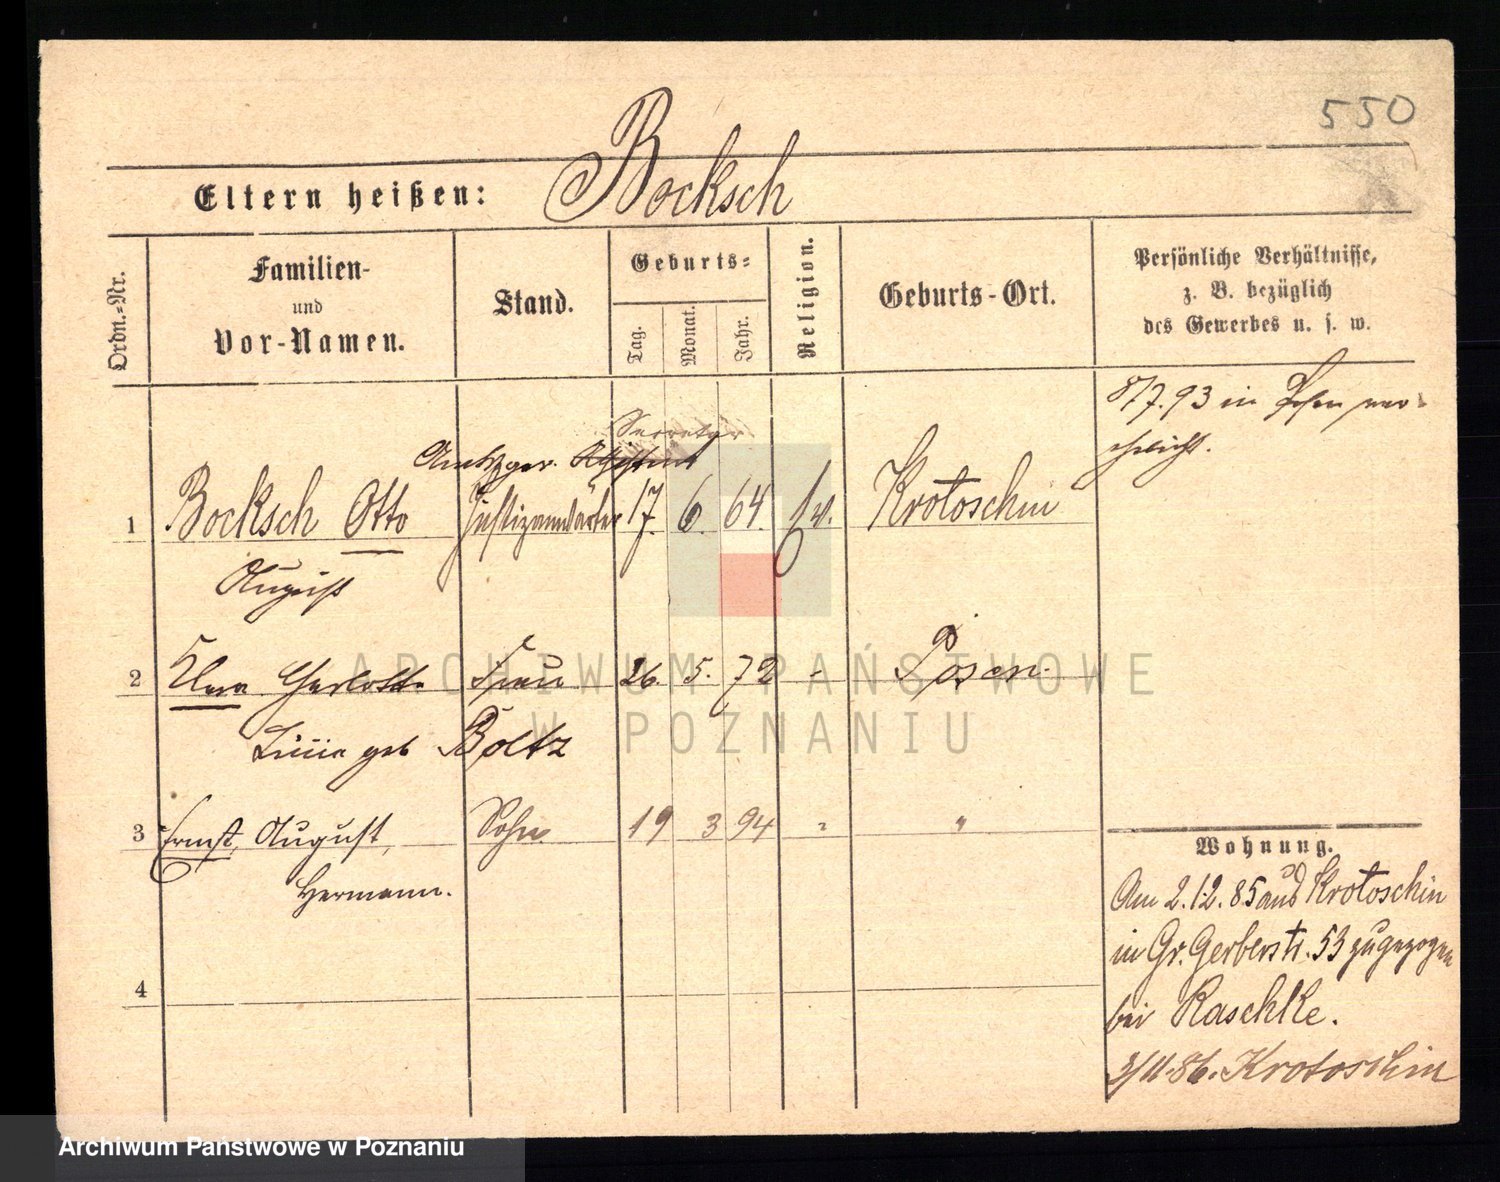 550
Eltern heißen: Bocksch
Ordn.-Nr.
Familien-
und
Vor-Namen.
Stand.
Geburts-
Tag.
Monat.
Jahr.
Religion.
Geburts-Ort.
Persönliche Verhältnisse,
z. B. bezüglich
des Gewerbes u. s. w.
8/7.93 in Posen ver-
ehelicht.
Secretär
Amtsger. Assistent
1 Bocksch Otto Justizanwärter 17. 6. 64. ev. Krotoschin
August
2 Charlotte Frau 26. 5. 72 - Posen.
geb Boltz
3 Ernst, August, Sohn 19 3 94 " "
Hermann.
4
Wohnung.
Am 2.12.85 aus Krotoschin
in Gr. Gerberstr. 53 zugezogen
bei Raschke.
2/11.86. Krotoschin
ARCHIWUM PAŃSTWOWE
W POZNANIU
Archiwum Państwowe w Poznaniu